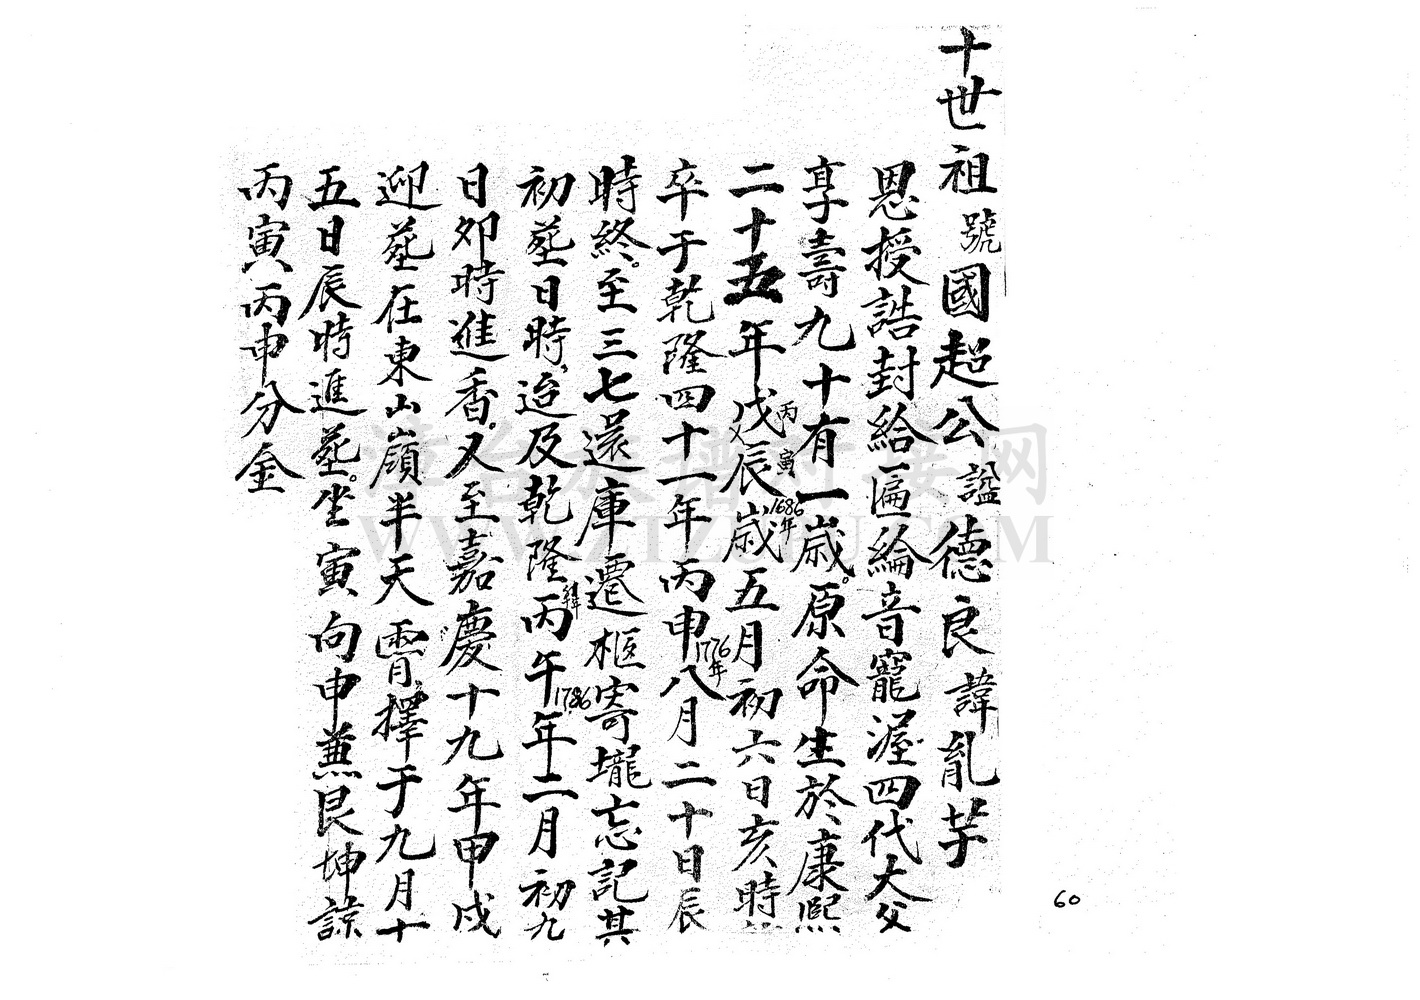 十世祖號國超公諡德良諱亂芋
恩授誥封給匾綸音寵渥四代大父
享壽九十有一歲。原命生於康熙
二十五年戊辰歲五月初六日亥時
丙寅
1686年
卒于乾隆四十一年丙申八月二十日辰
1776年
時終。至三七還庫遷柩寄壠忘記其
初塟日時、迨及乾隆丙午年二月初九
1786
日卯時進香。又至嘉慶十九年甲戌
迎塟在東山嶺半天霄、擇于九月十
五日辰時進塟。坐寅向申兼艮坤諒
丙寅丙申分金
60
漳台族谱对接网
WWW.ZTZUPU.COM